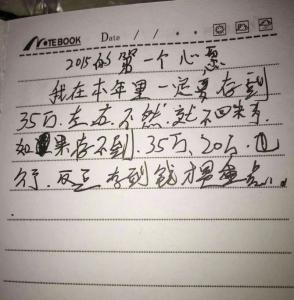 NOTEBOOK
Date / / .
2015的第一个心愿
我在本年里一定要存到
35万.左右.不然.就不回来了.
如果存不到.35万、20万.也
行.反正存到钱才是重点